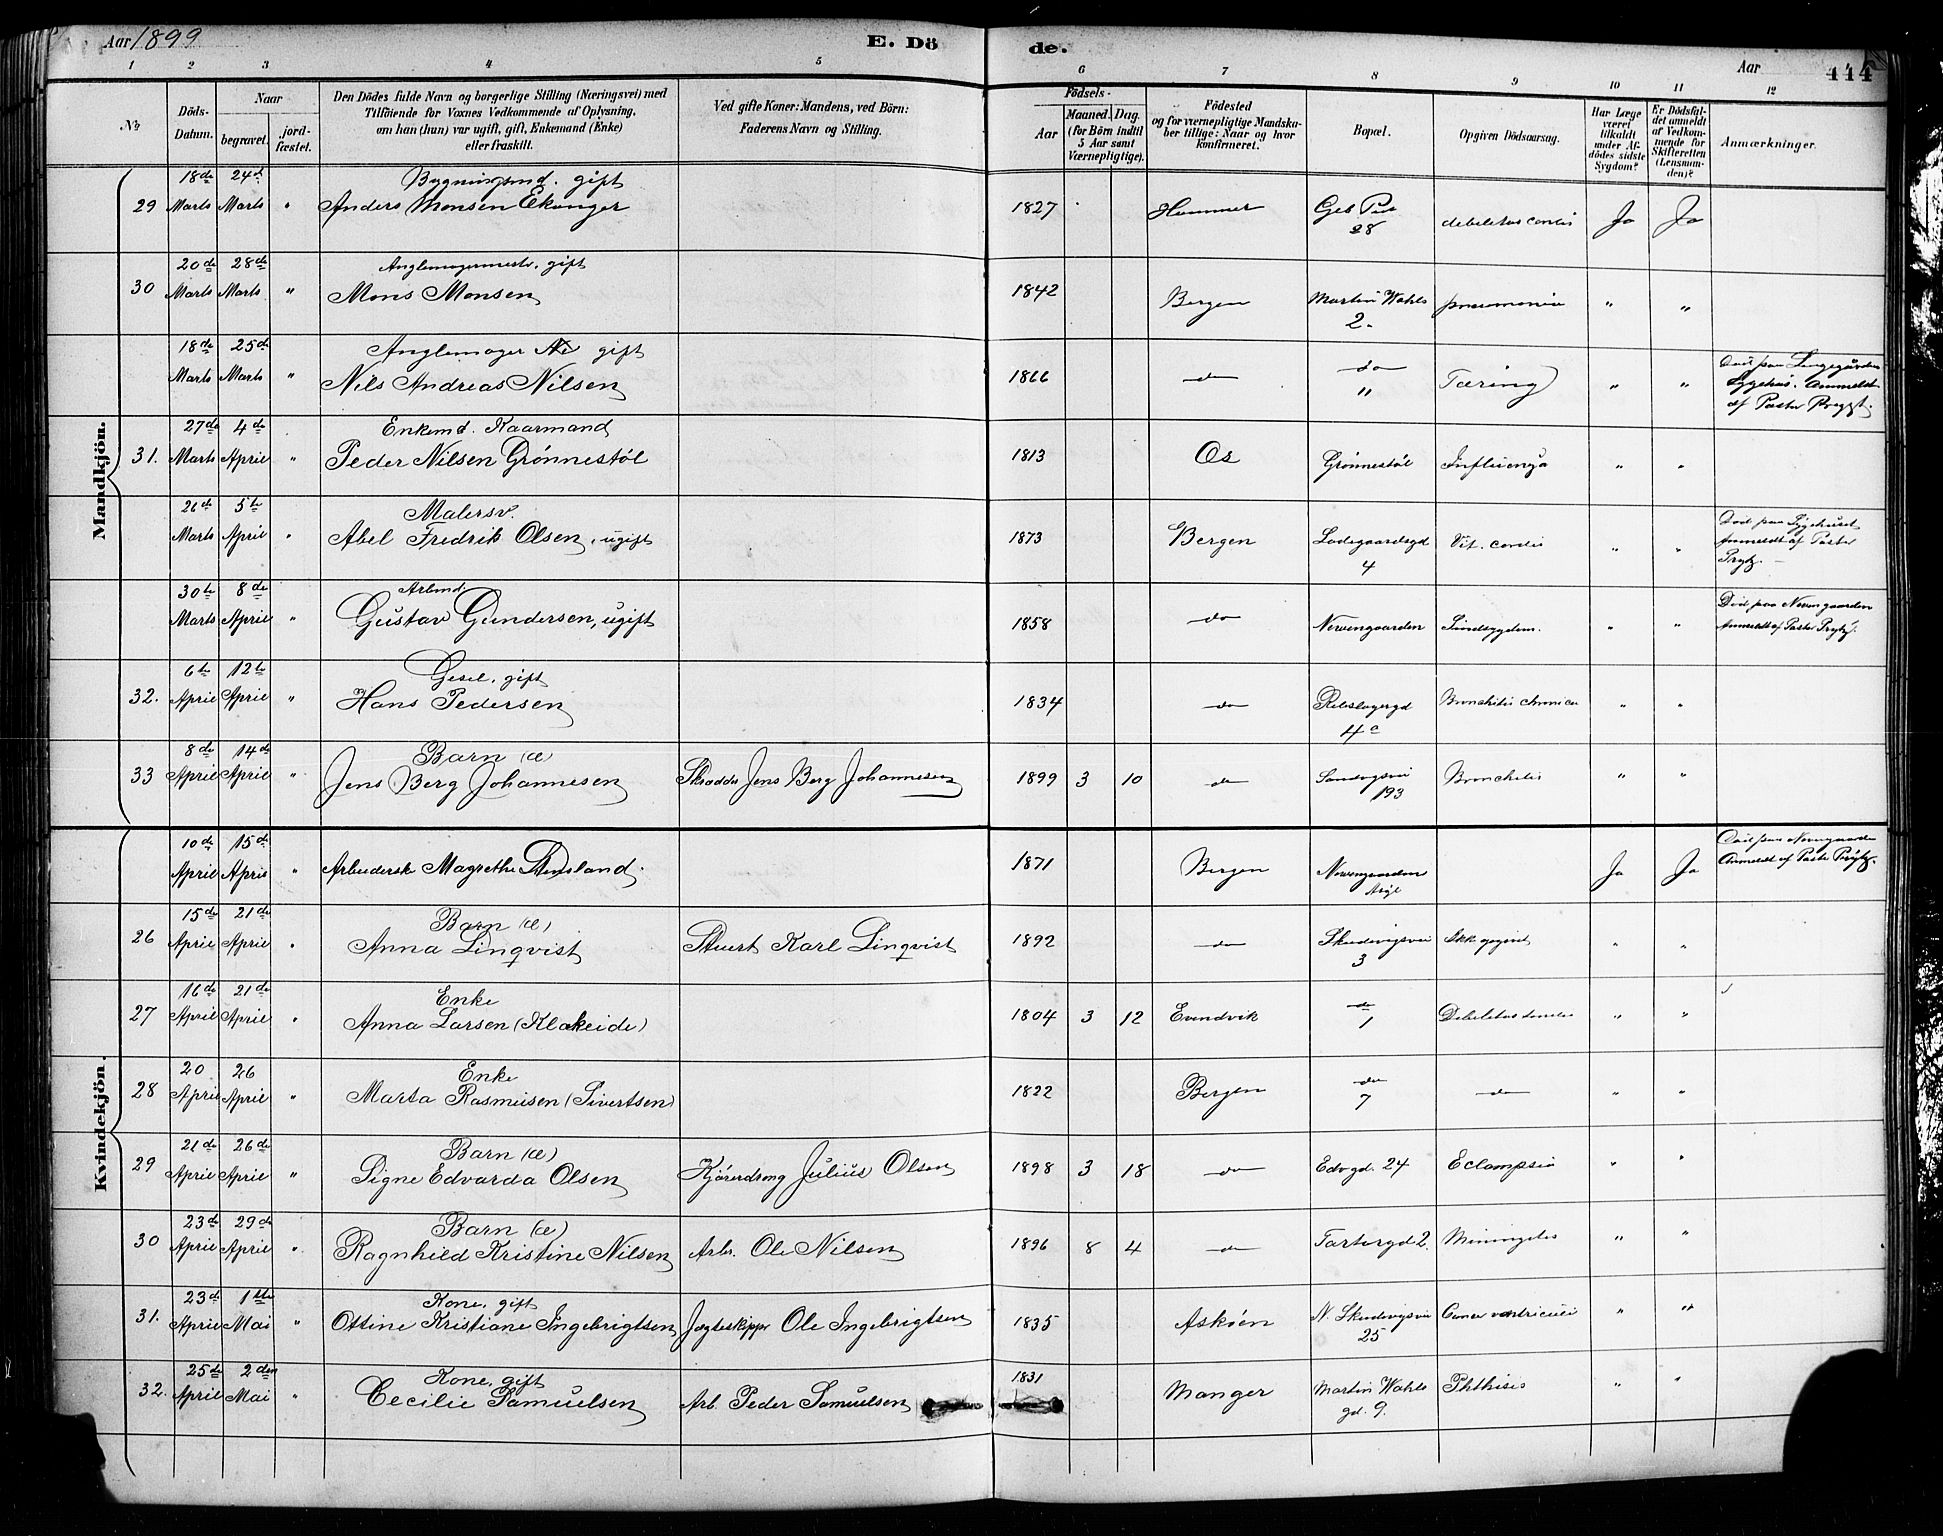 Aar 1899 E. Dö de. Aar 114
1 2 3 4 5 6 7 8 9 10 11 12
№ Döds-Datum. Naar begravet. jordfæstet. Den Dödes fulde Navn og borgerlige Stilling (Næringsvei) med Tilföiende for Voxnes Vedkommende af Oplysning, om han (hun) var ugift, gift, Enkemand (Enke) eller fraskilt. Ved gifte Koner: Mandens, ved Börn: Faderens Navn og Stilling. Födsels- Aar Maaned. Dag. (for Börn indtil 5 Aar samt Værnepligtige). Födested og for værnepligtige Mandskaber tillige: Naar og hvor konfirmeret. Bopæl. Opgiven Dödsaarsag. Har Læge været tilkaldt under Afdödes sidste Sygdom? Er Dödsfaldet anmeldt af Vedkommende for Skifteretten (Lensmanden)? Anmærkninger.
Mandkjön.
18de 24d Bygningsmd. gift
29 Marts Marts " Anders Monsen Ekanger 1827 Hammer 28 debeletas cordis Ja Ja
20de 28de gift
30 Marts Marts " Mons Monsen 1842 Bergen Martin Wahls 2. pneumonia " "
18de 25de Anglemager gift
Marts Marts " Nils Andreas Nilsen 1866 do do " Tæring " " Död paa Sygehus. Anmeldt af Pastor
27de 4de Enkemd. Kaarmand
31. Marts April " Peder Nilsen Grönnestöl 1813 Os Grönnestöl Influenza " "
26de 5te Malersv.
Marts April " Abel Fredrik Olsen, ugift 1873 Bergen Ladegaardsgd 4 Vit. cordis " " Död paa Sygehuset Anmeldt af Pastor Prytz.
30te 8de Arbmd
Marts April " Gustav Gundersen, ugift 1858 do Nevengaarden Sindsygdom. " " Död paa Nevengaarden Anmeldt af Pastor Prytz.
6te 12te gift
32. April April " Hans Pedersen 1834 do Rebslagergd 4c Bronchitis chronica " "
8de 14de Barn (æ)
33 April April " Jens Berg Johannesen Skrædder Jens Berg Johannesen 1899 3 10 do Sandvigsvei 193 Bronchitis " "
Kvindekjön.
10de 15de
April April " Arbeiderske Magrethe Stensland. 1871 Bergen Nevengaarden Asyl Ja Ja Död paa Nevengaarden Anmeldt af Pastor Prytz.
15de 21de Barn (æ)
26 April April " Anna Linqvist Stuert Karl Linqvist 1892 do Skudevigsvei 3 Ikke opgivet " "
16de 21de Enke
27 April April " Anna Larsen (Klakeide) 1804 3 12 Evindvik do 1 " "
20 26 Enke
28 April April " Marta Rasmusen (Sivertsen) 1822 Bergen do 7 do " "
21de 26de Barn (æ)
29 April April " Signe Edvarda Olsen Kjörerdreng Julius Olsen 1898 3 18 do Edvgd. 24 Eclampsia " "
23de 29de Barn (æ)
30 April April " Ragnhild Kristine Nilsen Arbr. Ole Nilsen 1896 8 4 do Tartargd 2. Miningites " "
23de 1ste Kone, gift
31. April Mai " Ottine Kristiane Ingebrigtsen Jægteskippr Ole Ingebrigtsen 1835 Asköen N. Skudevigsvei 25 Cancer ventriculi " "
25de 2den Kone, gift 1831
32. April Mai " Cecilie Samuelsen Arb. Peder Samuelsen Manger Martin Wahls gd. 9. Phthisis " "